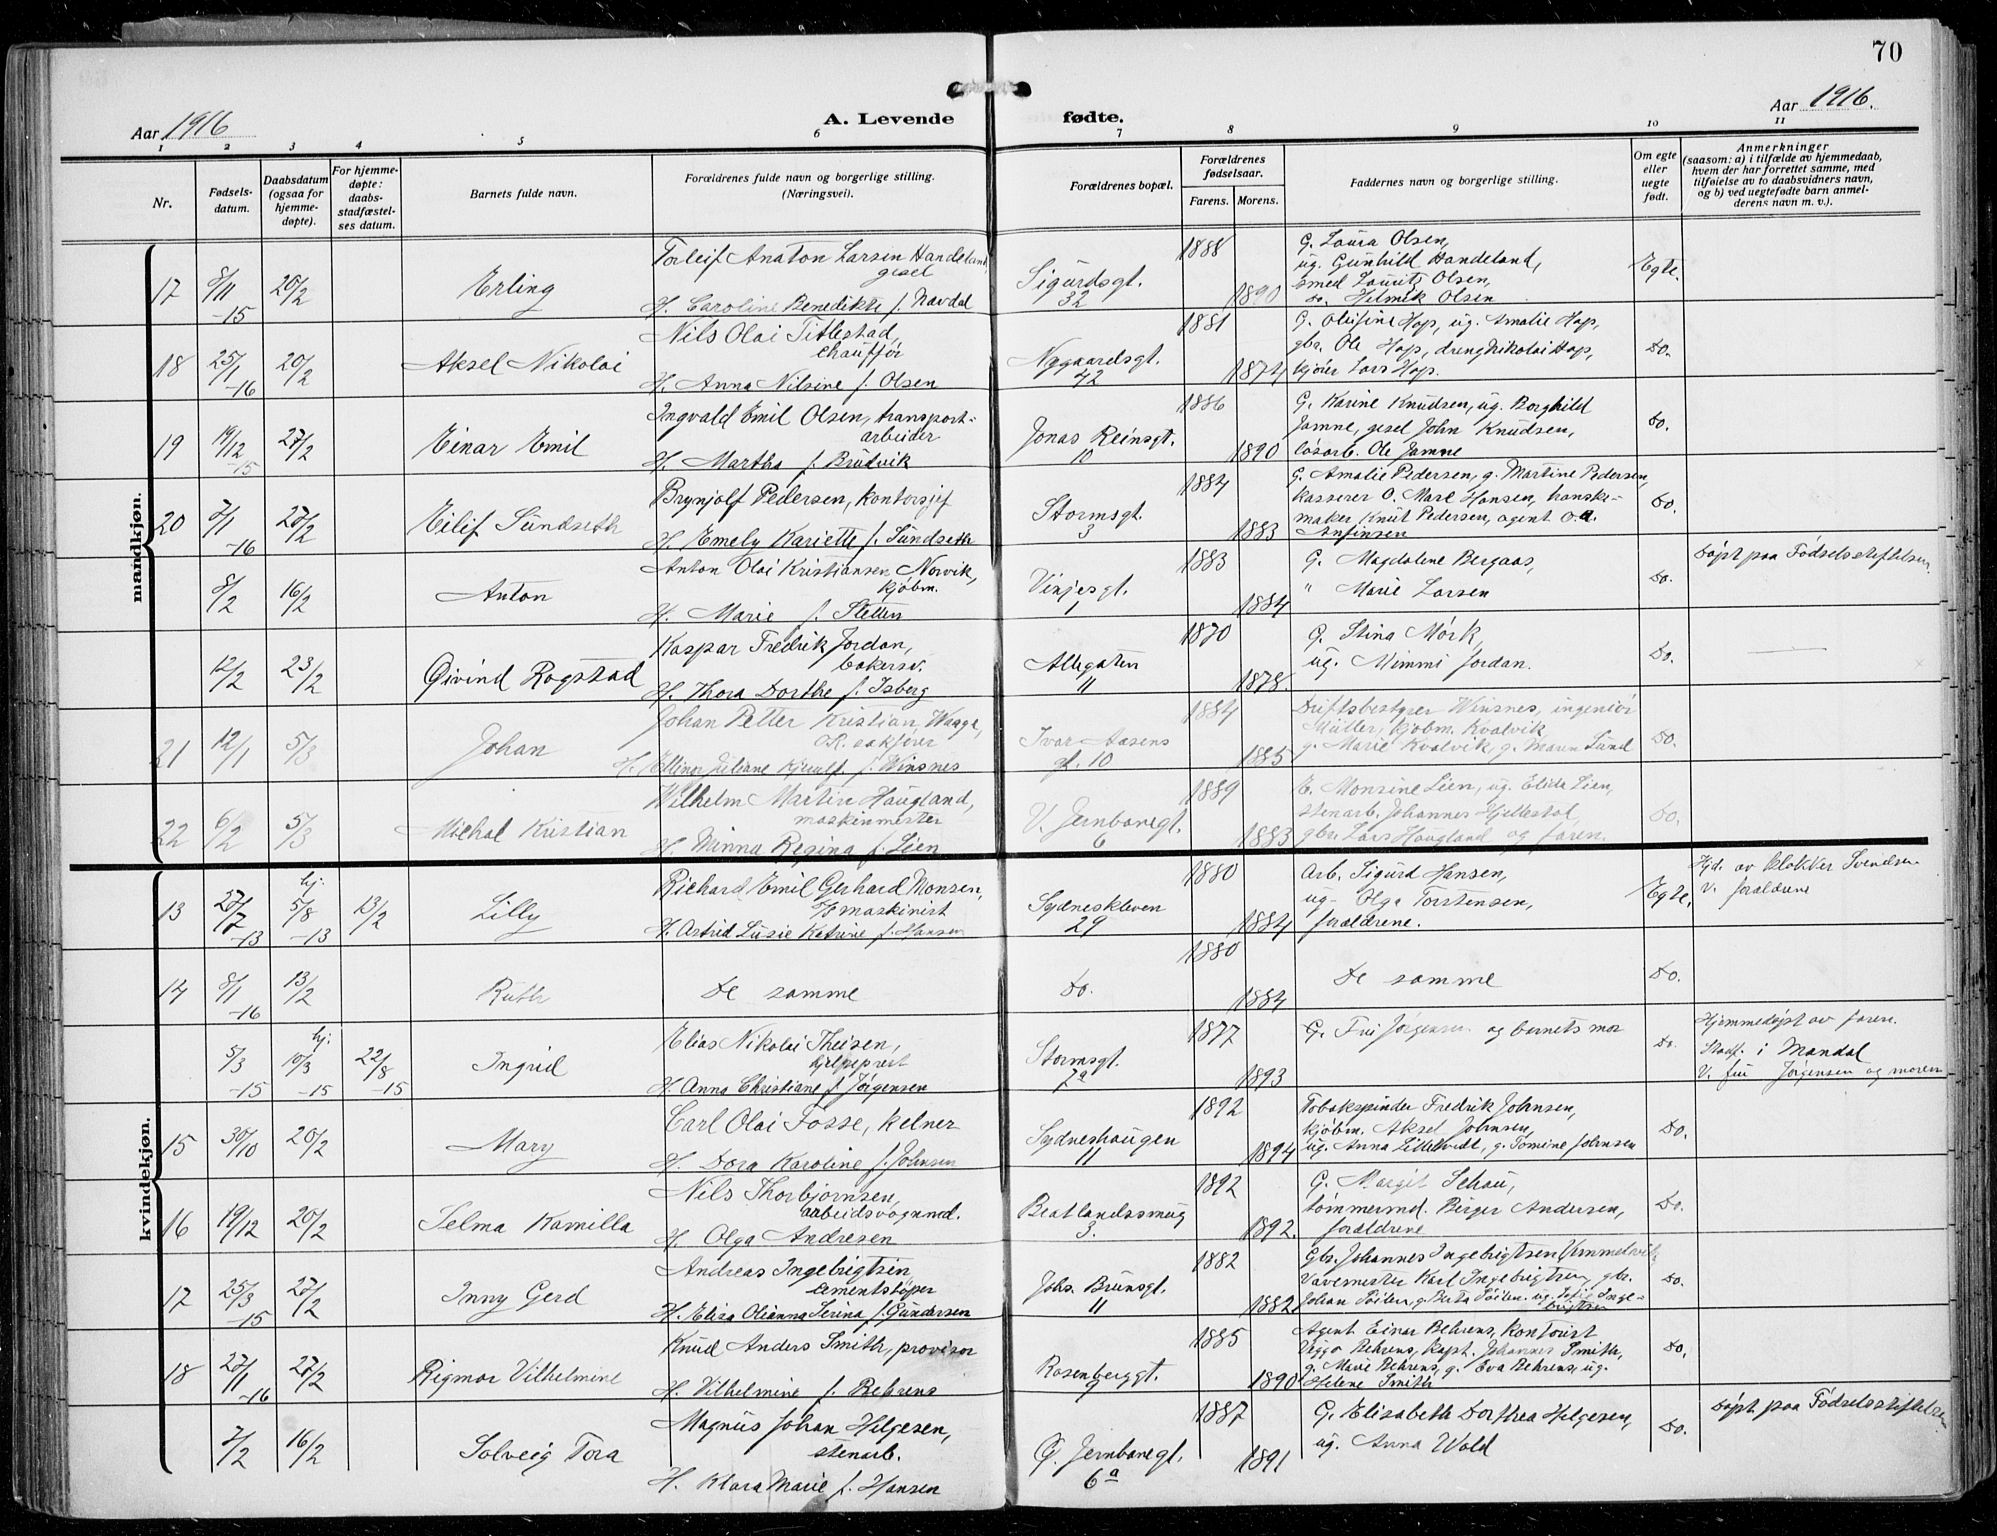 70
Aar 1916
A. Levende fødte.
Aar 1916.
1 2 3 4 5 6 7 8 9 10 11
Nr.
Fødsels-
datum.
Daabsdatum
(ogsaa for
hjemme-
døpte).
For hjemme-
døpte:
daabs-
stadfæstel-
ses datum.
Barnets fulde navn.
Forældrenes fulde navn og borgerlige stilling.
(Næringsvei).
Forældrenes bopæl.
Forældrenes
fødselsaar.
Farens. Morens.
Faddernes navn og borgerlige stilling.
Om egte
eller
uegte
født.
Anmerkninger
(saasom: a) i tilfælde av hjemmedaab,
hvem der har forrettet samme, med
tilføielse av to daabsvidners navn,
og b) ved uegtefødte barn anmel-
derens navn m. v.).
mandkjøn.
17 8/11 -15 20/2 Erling
Torleif Anaton Larsen Handeland,
gesel
H. Caroline Benedikte f. Navdal
Sigurdsgt.
32
1888 1890
G. Laura Olsen,
ug. Gunhild Handeland,
smed Lauritz Olsen,
do. Hilmik Olsen
Egte.
18 25/1 -16 20/2 Aksel Nikolai
Nils Olai Titlestad,
chaufför
H. Anna Nilsine f. Olsen
Nygaardsgt.
42
1881 1874
G. Olufine Hop, ug. Amalie Hop,
gbr. Ole Hop, dreng Nikolai Hop,
kjører Lars Hop.
Do.
19 19/12 -15 27/2 Einar Emil
Ingvald Emil Olsen, transport-
arbeider
H. Martha f. Brudvik
Jonas Reinsgt.
10
1886 1890
G. Karine Knudsen, ug. Borghild
Jamne, gesel John Knudsen,
løsarb. Ole Jamne
Do.
20 7/1 -16 27/2 Eilif Sundseth
Brynjolf Pedersen, kontorsjef
H. Emely Kariette f. Sundseth
Stormsgt.
3
1884 1883
G. Amalie Pedersen, g. Martine Pedersen,
kasserer O. Mare Hansen,
maker Knut Pedersen, agent O. A.
Anfinsen
Do.
8/2 16/2 Anton
Anton Olai Kristiansen Norvik,
kjøbm.
H. Marie f. Sletten
Vinjesgt.
1
1883 1884
G. Magdalene Bergaas,
" Marie Larsen
Do.
Døpt paa Fødselsstiftelsen.
12/2 23/2 Øivind Rogstad
Kaspar Fredrik Jordan,
bakersv.
H. Thora Dorthe f. Isberg
Allegaten
11
1870 1878.
G. Stina Mørk,
ug. Mimmi Jordan.
Do.
21 12/1 5/3 Johan
Johan Petter Kristian Waage,
O.R. sakfører
H. Ellinor Juliane f. Winsnes
Ivar Aasens
gt. 10
1884 1885
Driftsbestyrer Winsnes, ingeniør
Müller, kjøbm. Kvalvik,
g. Marie Kvalvik, g. Maren Lund
Do.
22 6/2 5/3 Michal Kristian
Wilhelm Martin Haugland,
maskinmester
H. Minna Regina f. Lien
V. Jernbanegt.
6
1889 1883
E. Monsine Lien, ug. Elida Lien,
stenarb. Johannes Hjellestad,
gbr. Lars Haugland og faren.
Do.
kvindekjøn.
13 27/7 -13 hj. 5/8 -13 13/2 Lilly
Richard Emil Gerhard Monsen,
maskinist
H. Astrid Lusie Katrine f. Hansen
Sydneskleven
29
1880 1884
Arb. Sigurd Hansen,
ug. Olga Torstensen,
forældrene.
Egte.
Hjd. av klokker Svendsen
V. forældrene
14 8/1 -16 13/2 Ruth
De samme
Do.
1880 1884
De samme
Do.
5/3 -15 hj. 10/3 -15 22/8 -15 Ingrid
Elias Nikolai Theisen,
hjelpeprest
H. Anna Christiane f. Jørgensen
Stormsgt.
7a
1877 1893
G. Fru Jørgensen og barnets mor
Do.
Hjemmedøpt av faren.
Stadf. i Mandal
V. fru Jørgensen og moren
15 30/10 20/2 Mary
Carl Olai Fosse, kelner
H. Dora Karoline f. Johnsen
Sydneshaugen
11
1892 1894
Tobakspinder Fredrik Johnsen,
kjøbm. Aksel Johnsen,
ug. Anna Lillekvidt, g. Tomine Johnsen
Do.
16 19/12 20/2 Selma Kamilla
Nils Thorbjørnsen,
arbeidsvognmd.
H. Olga Andresen
Beatlandssmug
3.
1892 1892.
G. Margit Schau,
tømmermd. Birger Andersen,
forældrene
Do.
17 25/3 -15 27/2 Inny Gerd
Andreas Ingebrigtsen
cementstøper
H. Eliza Olianna Serina f. Gundersen
Johs. Brunsgt.
11
1882 1882
Gbr. Johannes Ingebrigtsen
Vavemester Karl Ingebrigtsen, gbr.
Johan Söilen, g. Berta Söilen, ug. Inge-
brigtsen
Do.
18 27/11 -16 27/2 Rigmor Vilhelmine
Knud Anders Smith, provisor
H. Vilhelmine f. Behrens
Rosenberggt.
9
1885 1890
Agent Einar Behrens, kontorist
Viggo Behrens, kapt. Johannes Smith,
g. Marie Behrens, g. Eva Behrens, ug.
Helene Smith
Do.
7/2 16/2 Solveig Tora
Magnus Johan Helgesen,
stenarb.
H. Klara Marie f. Hansen
Ø. Jernbanegt.
6a
1887 1891
G. Elisabeth Dorthea Helgesen,
ug. Anna Wold
Do.
Døpt paa Fødselsstiftelsen